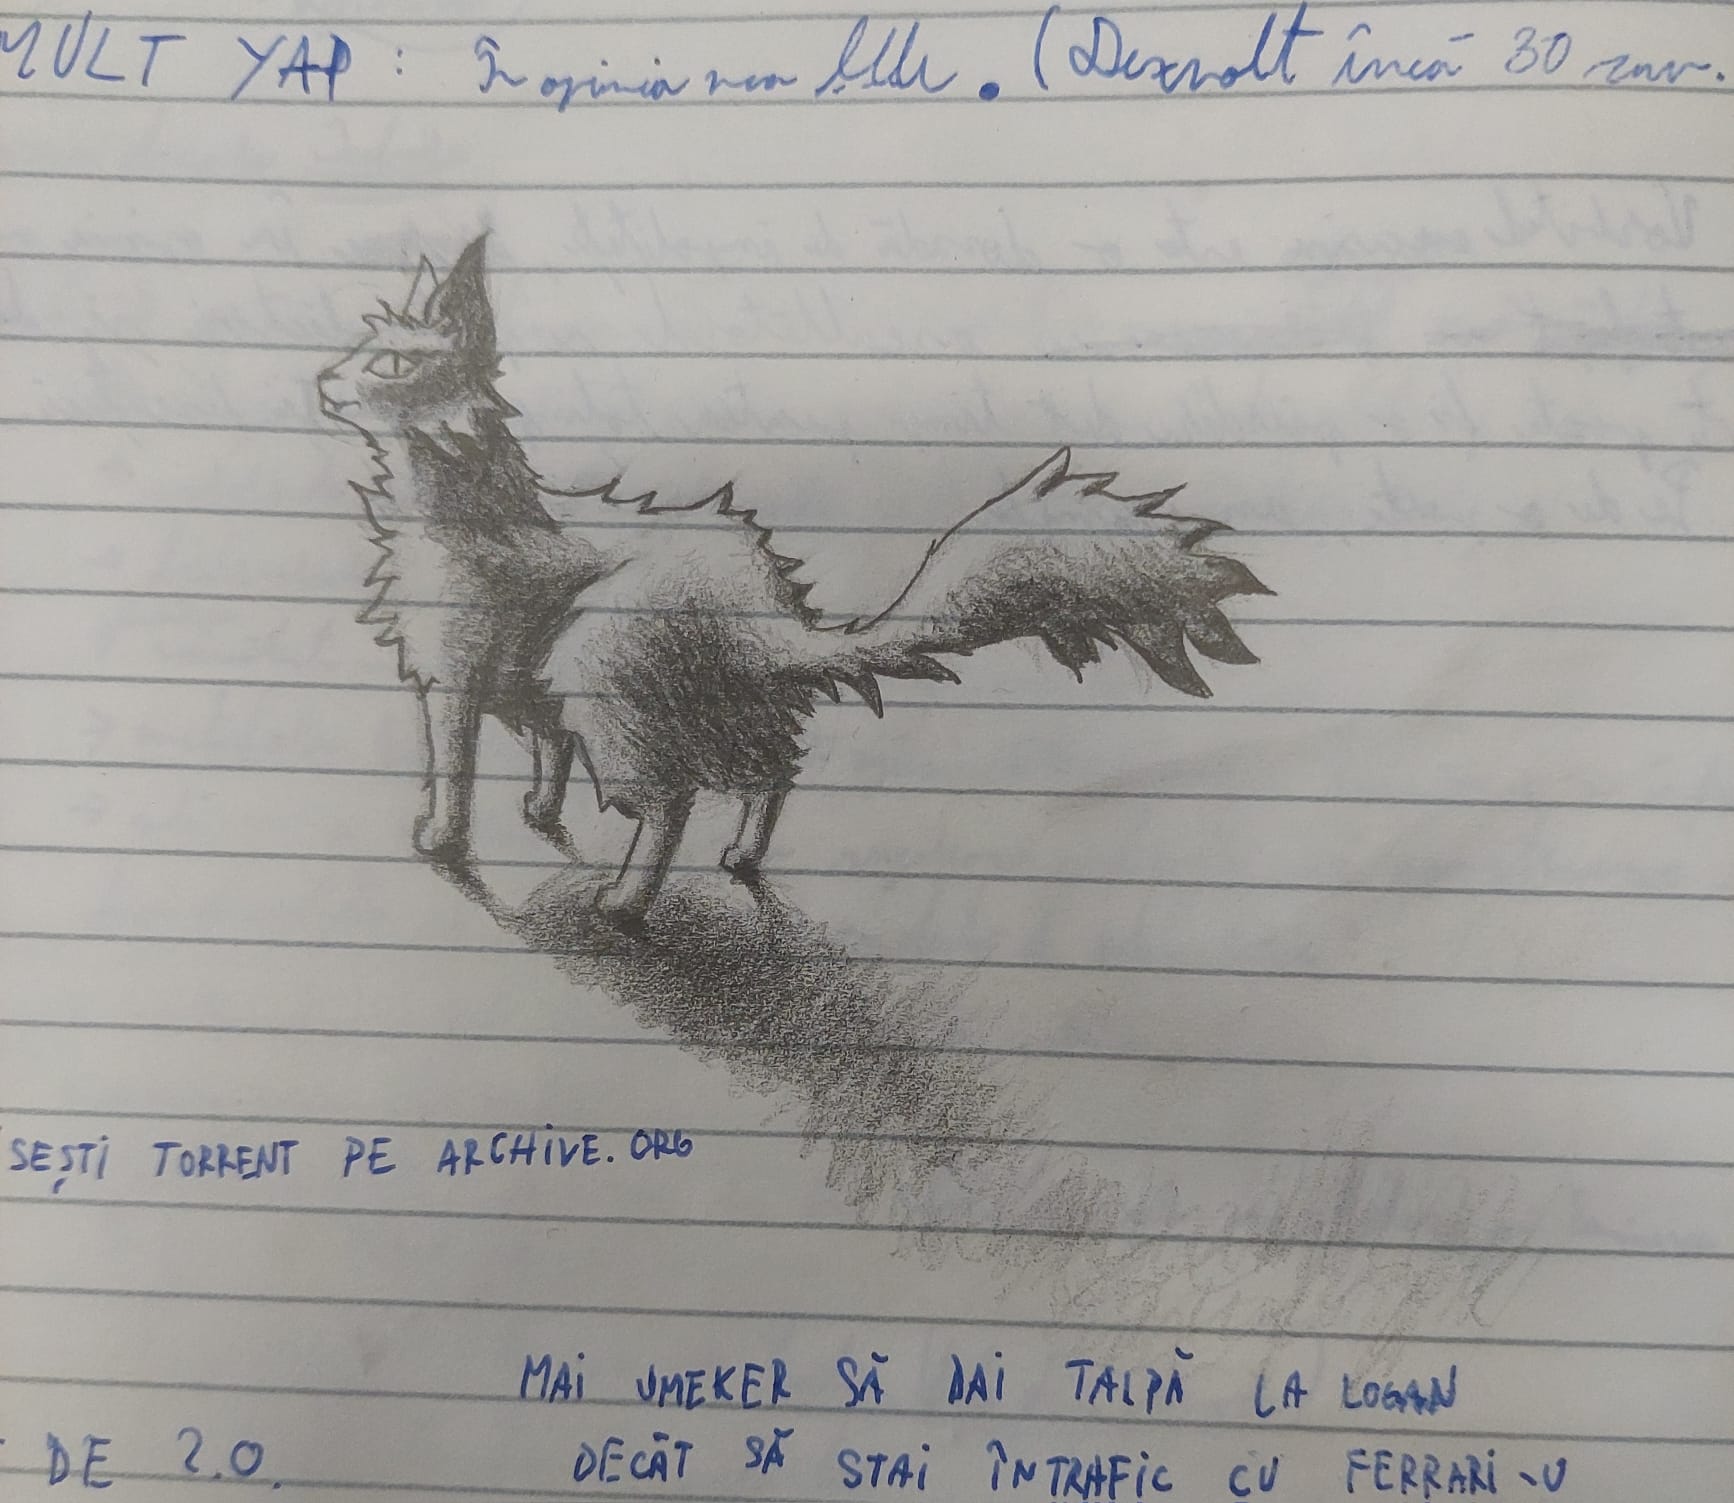 MULT YAP: În opinia mea . (Dezvolt încă 30
SEȘTI TORRENT PE ARCHIVE.ORG
MAI ȘMEKER SĂ DAI TALPĂ LA LOGAN
DE 2.0. DECÂT SĂ STAI ÎN TRAFIC CU FERRARI-U